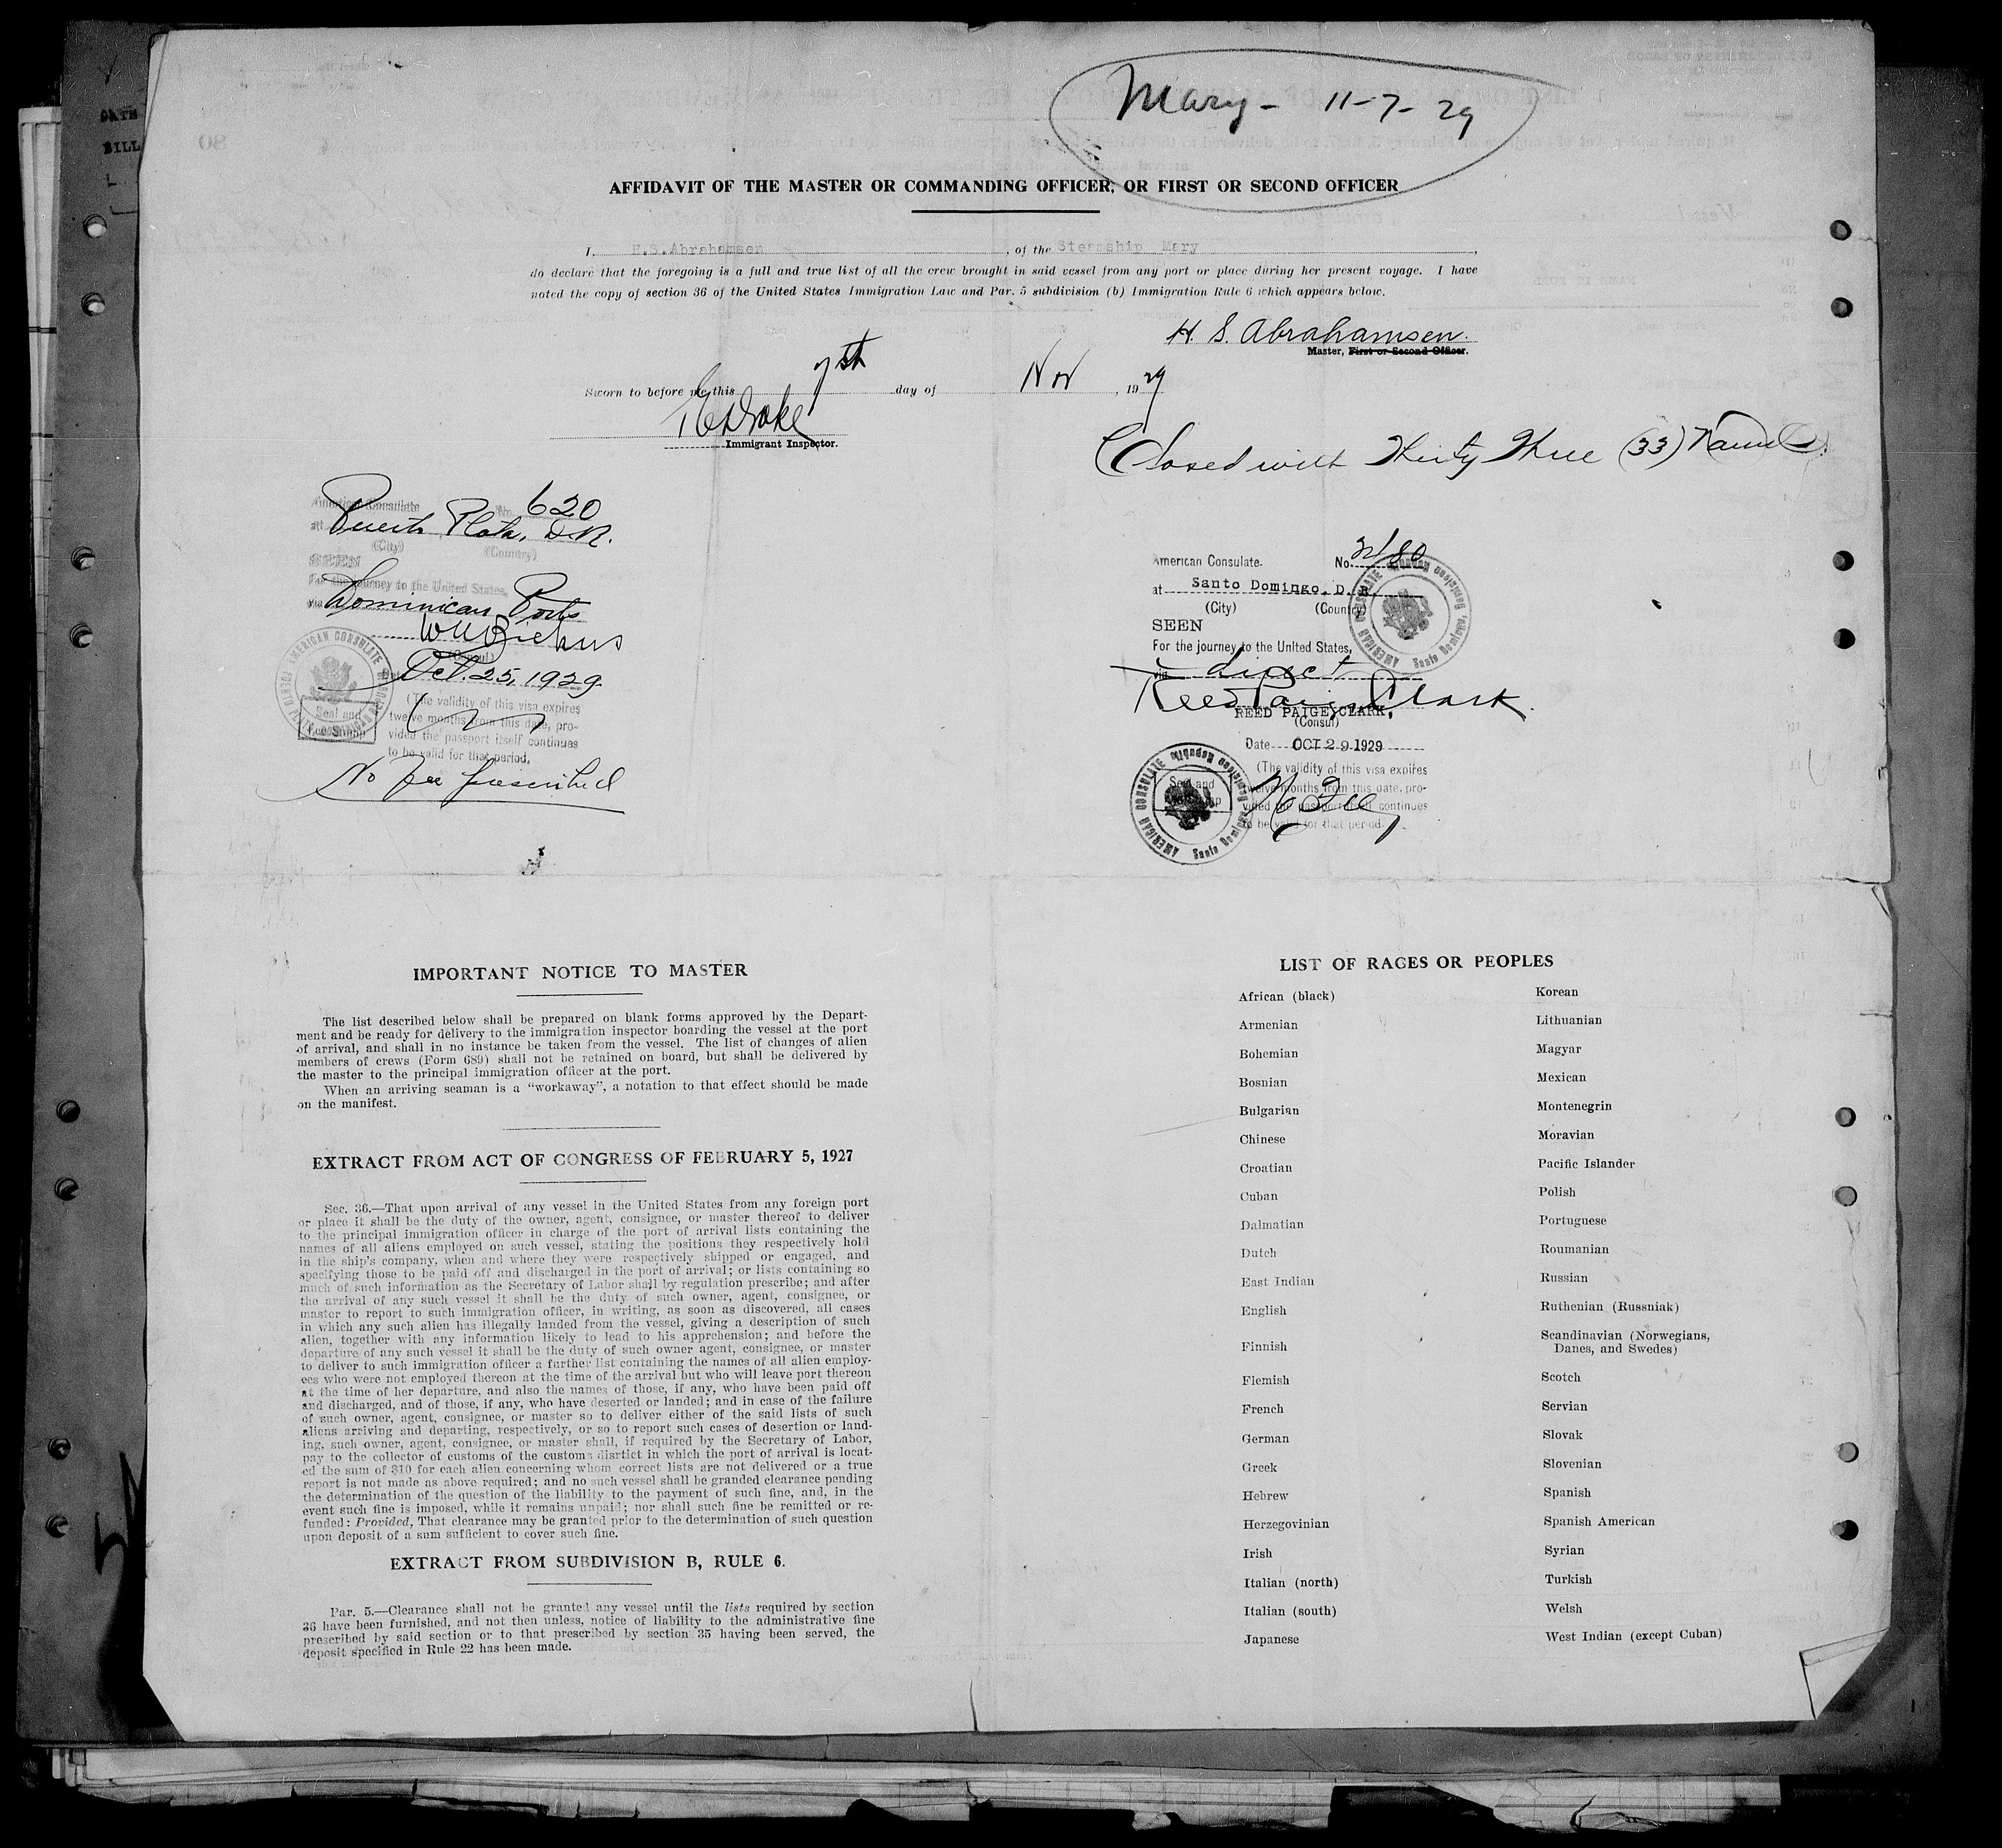 Mary - 11-7-29
AFFIDAVIT OF THE MASTER OR COMMANDING OFFICER, OR FIRST OR SECOND OFFICER
I, H.S.Abrahamsen, of the Steamship Mary,
do declare that the foregoing is a full and true list of all the crew brought in said vessel from any port or place during her present voyage. I have
noted the copy of section 36 of the United States Immigration Law and Par. 5 subdivision (b) Immigration Rule 6 which appears below.
H. S. Abrahamsen.
Master, First or Second Officer.
Sworn to before me this 7st day of Nov, 1929
Immigrant Inspector.
Closed with Thirty Three (33) Names.
American Consulate No. 620
at Puerto Plata, D.R.
(City) (Country)
SEEN
For the journey to the United States,
via Dominican Ports
(Consul)
Oct. 25, 1929
(The validity of this visa expires
twelve months from this date, pro-
vided the passport itself continues
to be valid for that period.
Seal and
AMERICAN CONSULATE
No fee prescribed
American Consulate. No.
at Santo Domingo, D. R.
(City) (Country)
SEEN
For the journey to the United States,
via direct
Reed Paige Clark
REED PAIGE CLARK,
(Consul)
Date OCT 29 1929
(The validity of this visa expires
twelve months from this date, pro-
vided the passport itself continues
to be valid for that period.
Seal and
No Fee
AMERICAN CONSULATE Santo Domingo, Dominican Republic
AMERICAN CONSULATE Santo Domingo, Dominican Republic
IMPORTANT NOTICE TO MASTER
The list described below shall be prepared on blank forms approved by the Depart-
ment and be ready for delivery to the immigration inspector boarding the vessel at the port
of arrival, and shall in no instance be taken from the vessel. The list of changes of alien
members of crews (Form 689) shall not be retained on board, but shall be delivered by
the master to the principal immigration officer at the port.
When an arriving seaman is a “workaway”, a notation to that effect should be made
on the manifest.
EXTRACT FROM ACT OF CONGRESS OF FEBRUARY 5, 1927
Sec. 36.—That upon arrival of any vessel in the United States from any foreign port
or place it shall be the duty of the owner, agent, consignee, or master thereof to deliver
to the principal immigration officer in charge of the port of arrival lists containing the
names of all aliens employed on such vessel, stating the positions they respectively hold
in the ship's company, when and where they were respectively shipped or engaged, and
specifying those to be paid off and discharged in the port of arrival; or lists containing so
much of such information as the Secretary of Labor shall by regulation prescribe; and after
the arrival of any such vessel it shall be the duty of such owner, agent, consignee, or
master to report to such immigration officer, in writing, as soon as discovered, all cases
in which any such alien has illegally landed from the vessel, giving a description of such
alien, together with any information likely to lead to his apprehension; and before the
departure of any such vessel it shall be the duty of such owner agent, consignee, or master
to deliver to such immigration officer a further list containing the names of all alien employ-
ees who were not employed thereon at the time of the arrival but who will leave port thereon
at the time of her departure, and also the names of those, if any, who have been paid off
and discharged, and of those, if any, who have deserted or landed; and in case of the failure
of such owner, agent, consignee, or master so to deliver either of the said lists of such
aliens arriving and departing, respectively, or so to report such cases of desertion or land-
ing, such owner, agent, consignee, or master shall, if required by the Secretary of Labor,
pay to the collector of customs of the customs disrtict in which the port of arrival is locat-
ed the sum of $10 for each alien concerning whom correct lists are not delivered or a true
report is not made as above required; and no such vessel shall be granded clearance pending
the determination of the question of the liability to the payment of such fine, and, in the
event such fine is imposed, while it remains unpaid; nor shall such fine be remitted or re-
funded: Provided, That clearance may be granted prior to the determination of such question
upon deposit of a sum sufficient to cover such fine.
EXTRACT FROM SUBDIVISION B, RULE 6.
Par. 5.—Clearance shall not be granted any vessel until the lists required by section
36 have been furnished, and not then unless, notice of liability to the administrative fine
prescribed by said section or to that prescribed by section 35 having been served, the
deposit specified in Rule 22 has been made.
LIST OF RACES OR PEOPLES
African (black)
Armenian
Bohemian
Bosnian
Bulgarian
Chinese
Croatian
Cuban
Dalmatian
Dutch
East Indian
English
Finnish
Flemish
French
German
Greek
Hebrew
Herzegovinian
Irish
Italian (north)
Italian (south)
Japanese
Korean
Lithuanian
Magyar
Mexican
Montenegrin
Moravian
Pacific Islander
Polish
Portuguese
Roumanian
Russian
Ruthenian (Russniak)
Scandinavian (Norwegians,
Danes, and Swedes)
Scotch
Servian
Slovak
Slovenian
Spanish
Spanish American
Syrian
Turkish
Welsh
West Indian (except Cuban)